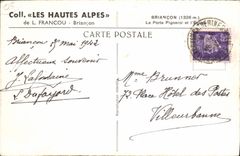 Coll. «LES HAUTES ALPES»
de L. FRANCOU - Briançon
BRIANÇON (1326 m.)
La Porte Pignerol et l'
CARTE POSTALE
Briançon 8 mai 1942
Affectueux souvenir
Mme Brunner
72 Place Hôtel des Postes
Villeurbanne